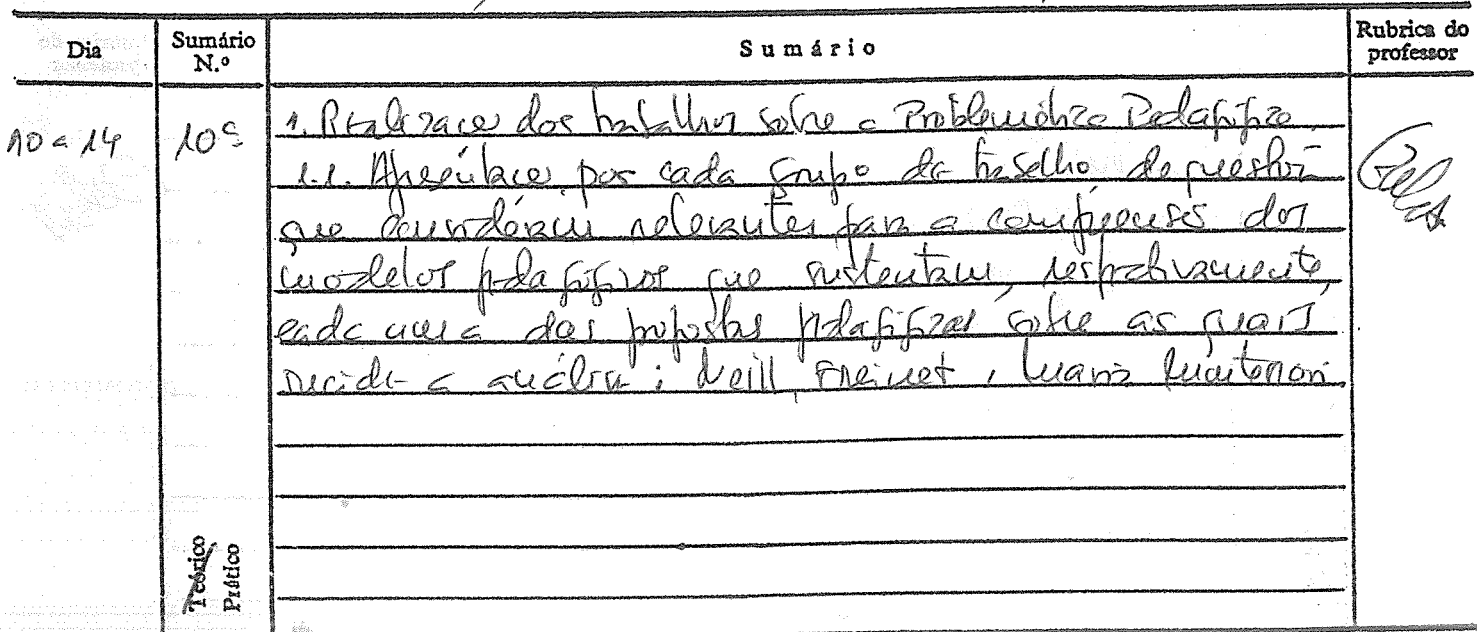 Dia
Sumário N.º
Sumário
Rubrica do professor
10 a 14
10ª
1. Realização dos trabalhos sobre a Problemática Pedagógica.
1.1. Apresentação, por cada grupo de trabalho de questões
que consideram relevantes para a compreensão dos
modelos pedagógicos que sustentam, respectivamente,
cada uma das propostas pedagógicas sobre as quais
incide a análise: Neill, Freinet, Maria Montessori.
Teórico
Prático